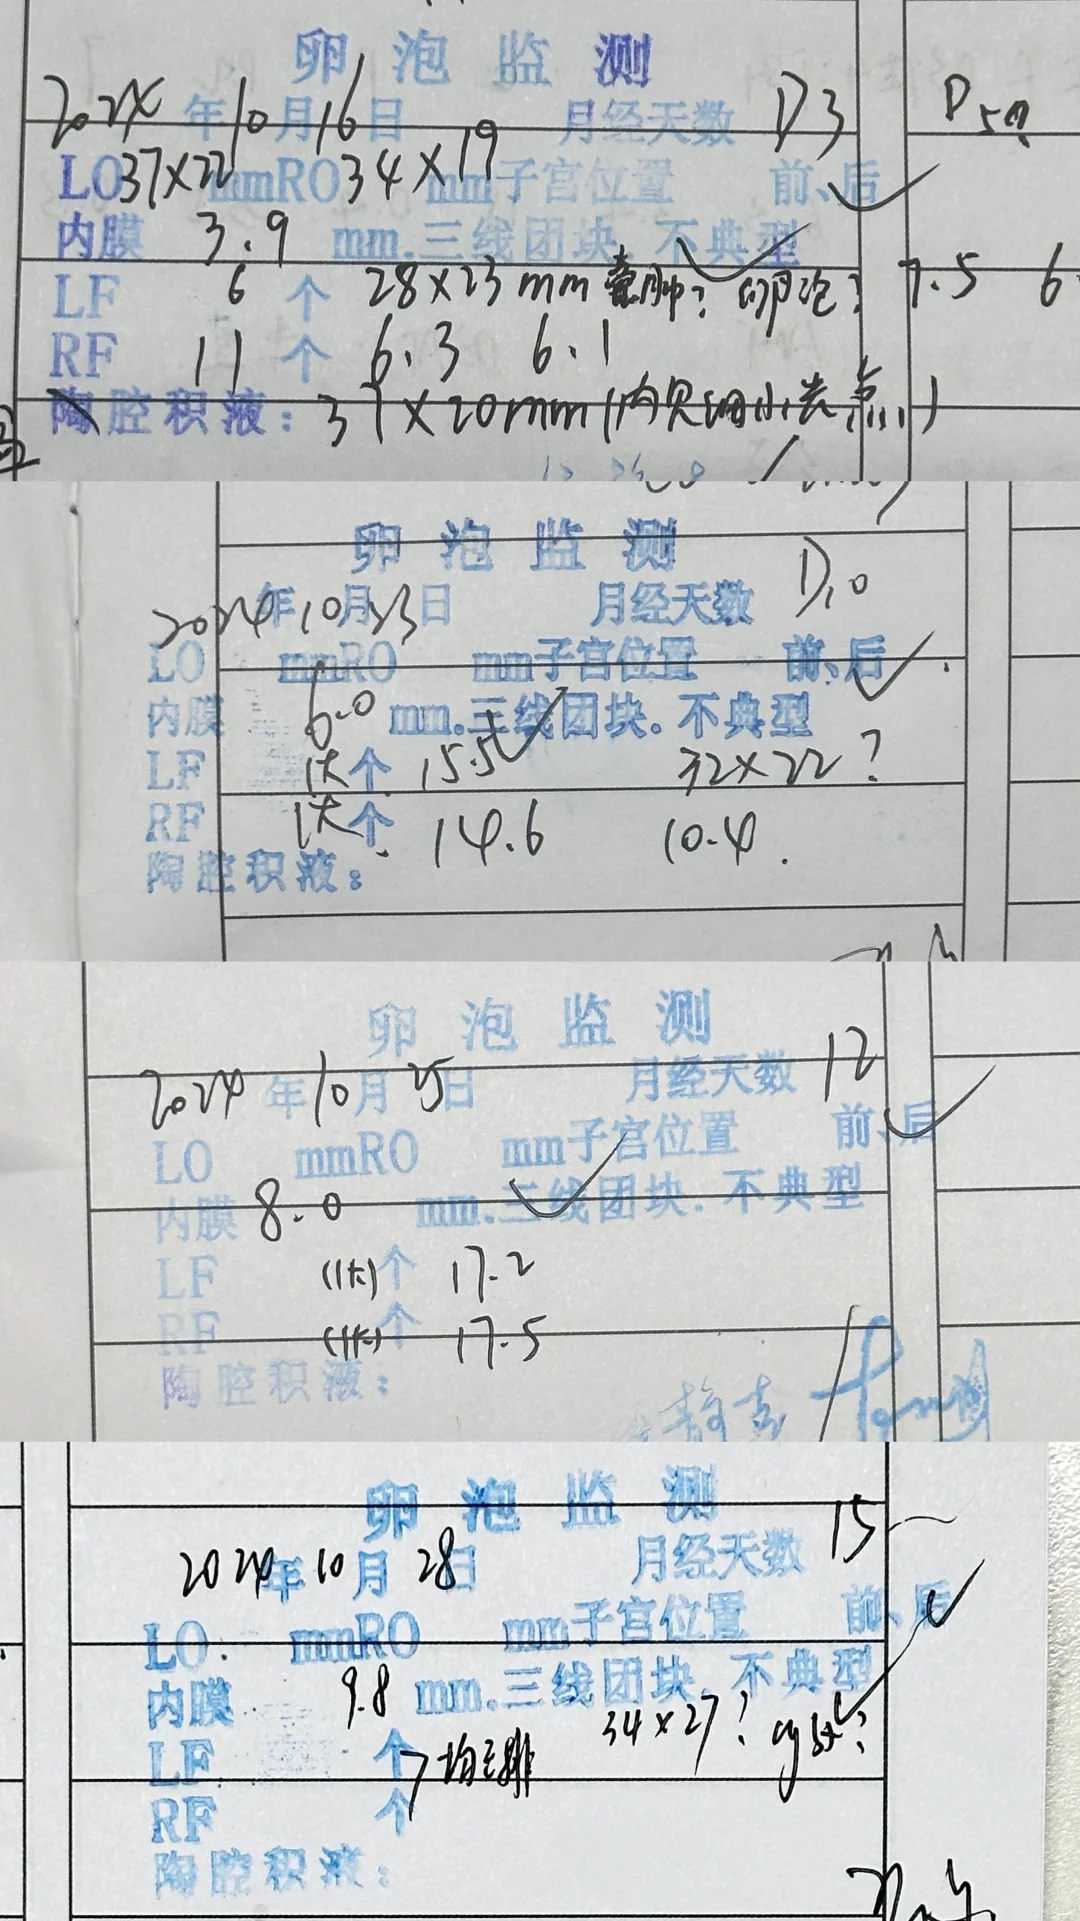 卵泡监测
2024年10月16日 月经天数 D3
LO 37×22 mm RO 34×19 mm 子宫位置 前、后
内膜 3.9 mm.三线团块.不典型
LF 6 个 28×23mm 囊肿? 卵泡? 7.5 6
RF 11 个 6.3 6.1
陶腔积液: 37×20mm
卵泡监测
2024年10月23日 月经天数 D10
LO mmRO mm子宫位置 前、后
内膜 6.0 mm.三线团块.不典型
LF 1大个 15.5 32×22?
RF 1大个 14.6 10.4
陶腔积液:
卵泡监测
2024年10月25日 月经天数 12
LO mmRO mm子宫位置 前、后
内膜 8.0 mm.三线团块.不典型
LF (1大)个 17.2
RF (1大)个 17.5
陶腔积液:
卵泡监测
2024年10月28日 月经天数 15
LO mmRO mm子宫位置 前、后
内膜 9.8 mm.三线团块.不典型
34×27? cyst?
LF 个 均已排
RF 个
陶腔积液: